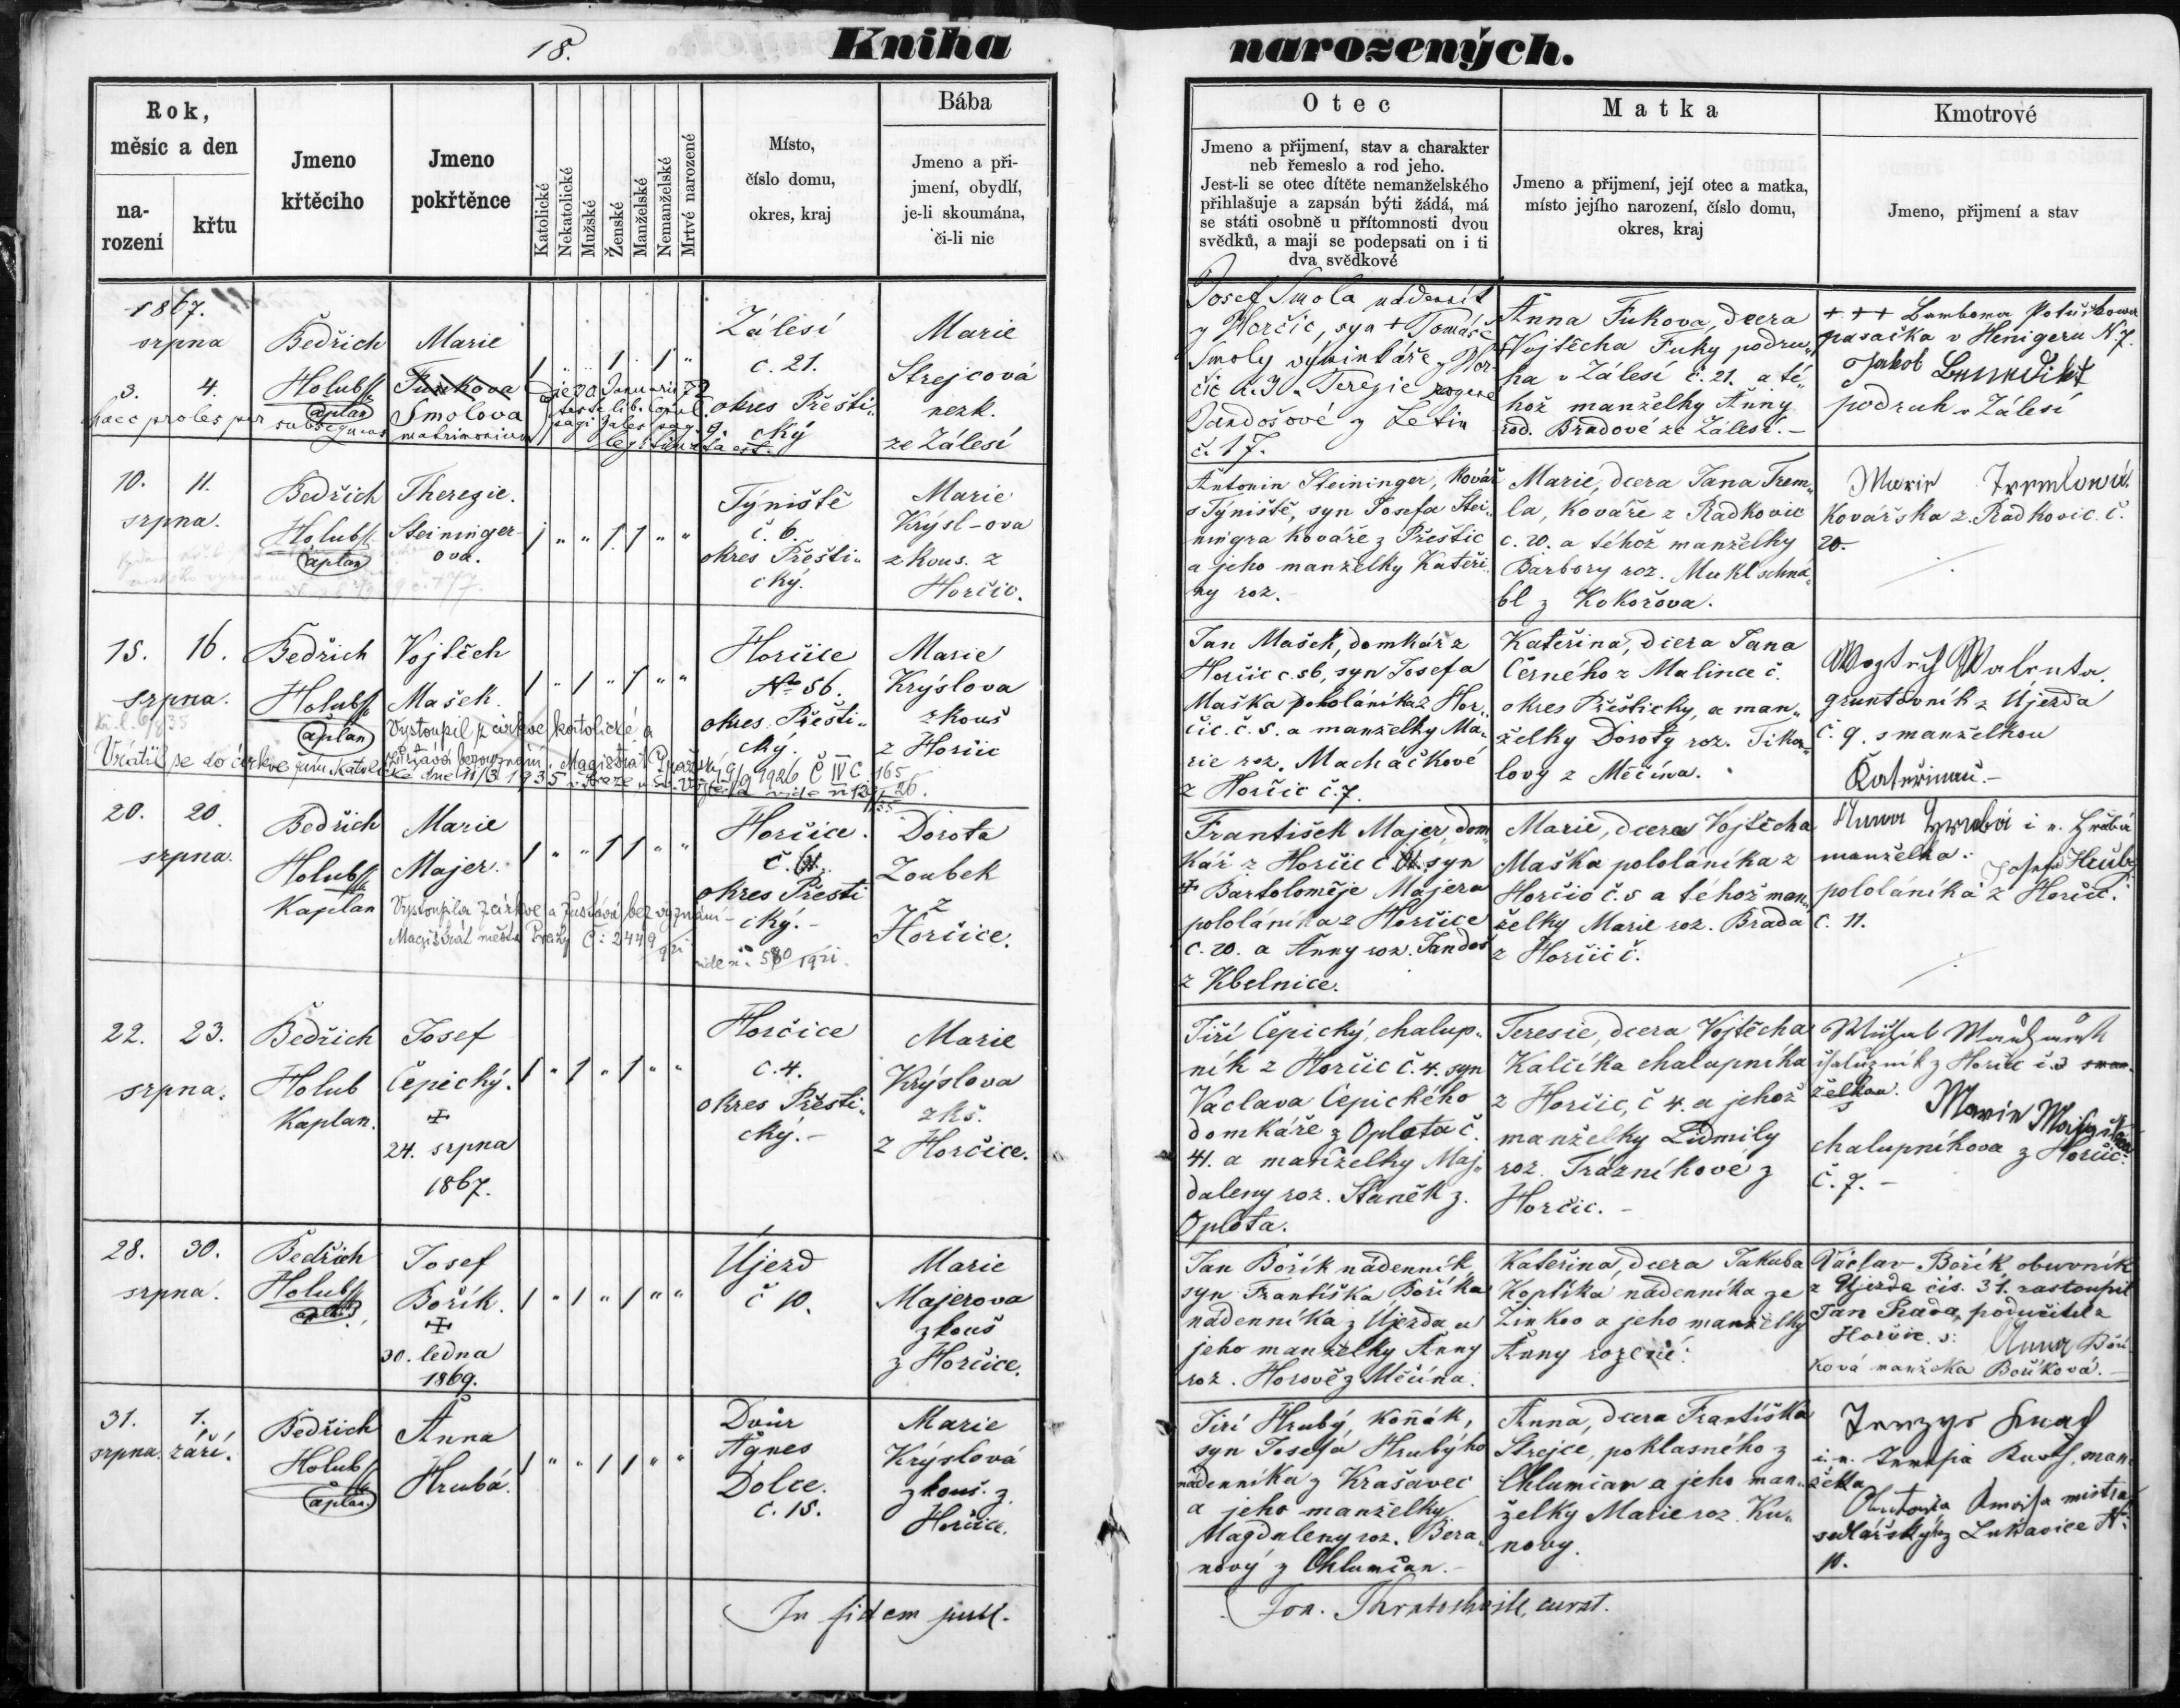 18.
Kniha narozených.
Rok,
měsíc a den
na-
rození
křtu
Jmeno
křtěcího
Jmeno
pokřtěnce
Katolické
Nekatolické
Mužské
Ženské
Manželské
Nemanželské
Mrtvé narozené
Místo,
číslo domu,
okres, kraj
Bába
Jmeno a při-
jmení, obydlí,
je-li skoumána,
či-li nic
Otec
Jmeno a přijmení, stav a charakter
neb řemeslo a rod jeho.
Jest-li se otec dítěte nemanželského
přihlašuje a zapsán býti žádá, má
se státi osobně u přítomnosti dvou
svědků, a mají se podepsati on i ti
dva svědkové
Matka
Jmeno a přijmení, její otec a matka,
místo jejího narození, číslo domu,
okres, kraj
Kmotrové
Jmeno, přijmení a stav
1867.
srpna
3. 4.
Bedřich
Holub
kaplan
Marie
Fuukova
Smolova
haec proles per subsequens matrimonium
Die 20 Januarii 72
teste lib. Copul.
pagi Zales pag. 9.
legitimata est.
1 " " 1 " 1 "
Zálesí
č. 21.
okres Přešti„
cký
Marie
Strejcová
nezk.
ze Zálesí
Josef Smola nádeník
z Horčic, syn + Tomáše
Smoly vý z Hor-
čic a Terezie rozené
Jandošové z Letin
č. 17.
Anna Fukova, dcera
Vojtěcha Fuky podru„
ha v Zálesí č. 21. a té„
hož manželky Anny
rod. Bradové ze Zálesí. –
+++ Barbora
pasačka v Henigeru N 7.
Jakob Benedikt
podruh v Zálesí
10. 11.
srpna.
Bedřich
Holub
kaplan
Theregie.
Steininger-
ova.
1 " " 1 1 " "
Týniště
č. 6.
okres Přešti„
cký.
Marie
Krýsl-ova
zkous. z
Horčic.
Antonin Steininger, Kovář
z Týniště, syn Josefa Stei„
ningra kováře z Přeštic
a jeho manželky Kateři„
ny roz.
Marie, dcera Jana Trem„
la, Kováře z Radkovic
č. 20. a téhož manželky
Barbory roz. Muklschna„
bl z Kokořova.
Marie Tremlová
Kovářska z Radkovic č.
20.
15. 16.
srpna.
Bedřich
Holub
kaplan
Vojtěch
Mašek.
1 " 1 " 1 " "
Horčice
No 56.
okres Přešti„
cký.
Marie
Krýslova
zkouš
z Horčic
Vystoupil z církve katolické a
zůstává bez vyznání. Magistrát Pražský 9/9 1926 Č IV C 165
Vrátil se do církve řím. katolické dne 11/3 1935 v Praze u Sv. Vojtěcha
Jan Mašek, domkář z
Horčic č. 56, syn Josefa
Maška pololáníka z Hor„
čic. č. 5. a manželky Ma„
rie roz. Macháčkové
z Horčic č. 7.
Kateřina, dcera Jana
Černého z Malince č.
okres Přeštický, a man„
želky Doroty roz. Tika„
lovy z Měčína.
Wogtěch Walenta.
gruntovník z Újezda
č. 9. s manželkou
Kateřinau. –
20. 20.
srpna.
Bedřich
Holub
Kaplan
Marie
Majer.
1 " " 1 1 " "
Horčice.
č.
okres Přešti
cký. –
Dorota
Zoubek
z
Horčice.
Vystoupila z církve a zůstává bez vyznání –
Magistrát města Prahy Č: 2449/921
vide n. 580/1921.
František Majer, dom„
kář z Horčic č. syn
+ Bartoloměje Majera
pololáníka z Horčice
č. 20. a Anny roz. Jandoš
z Kbelnice.
Marie, dcera Vojtěcha
Maška pololáníka z
Horčic č. 5 a téhož man„
želky Marie roz. Brada
z Horčic č.
Anna Hrubá i n. Hrubá
manželka Josefa Hrubý
pololáníka z Horčic.
č. 11.
22. 23.
srpna.
Bedřich
Holub
Kaplan.
Josef
Čepický.
+
24. srpna
1867.
1 " 1 " 1 " "
Horčice
č. 4.
okres Přešti„
cký. –
Marie
Krýslova
zkš.
z Horčice.
Jiří Čepický, chalup„
ník z Horčic č. 4. syn
Vaclava Čepického
domkáře z Oplota č.
41. a manželky Maj„
daleny roz. Staněk z.
Oplota.
Teresie, dcera Vojtěcha
Kalčíka chalupníka
z Horčic, č 4. a jehož
manželky Lidmily
roz. Trázníkové z
Horčic. –
z Horčic č. 3 sman
želkou.
s Marie
chalupníkova z Horčic.
č. 7. –
28. 30.
srpna.
Bedřich
Holub
kaplan
Josef
Bořík.
+
30. ledna
1869.
1 " 1 " 1 " "
Újezd
č 10.
Marie
Majerova
zkouš
z Horčice.
Jan Bořík nádenník
syn Františka Boříka
nádenníka z Újezda a
jeho manželky Anny
roz. Horově z Měčína.
Kateřina, dcera Jakuba
Koplíka nádenníka ze
Žinkov a jeho manželky
Anny rozené:
Václav Bořík obuvník
z Újezda čís. 31. zastoupil
Jan Šrada, podučitel z
Horčic. s: Anna Boří
ková manželka Boříková. –
31. 1.
srpna. září.
Bedřich
Holub
kaplan
Anna
Hrubá.
1 " " 1 1 " "
Dvůr
Agnes
Dolce.
č. 15.
Marie
Krýslová
zkouš. z
Horčice.
Jiří Hrubý, koňák,
syn Josefa Hrubýho
nádenníka z Krašovec
a jeho manželky
Magdaleny roz. Bera„
nový z Chlumčan. –
Anna, dcera Františka
Strejce, poklasného z
Chlumčan a jeho man„
želky Marie roz. Ku„
novy.
man
želka
mistra
sedlářského z Lukavice No
10.
In fidem
curat.